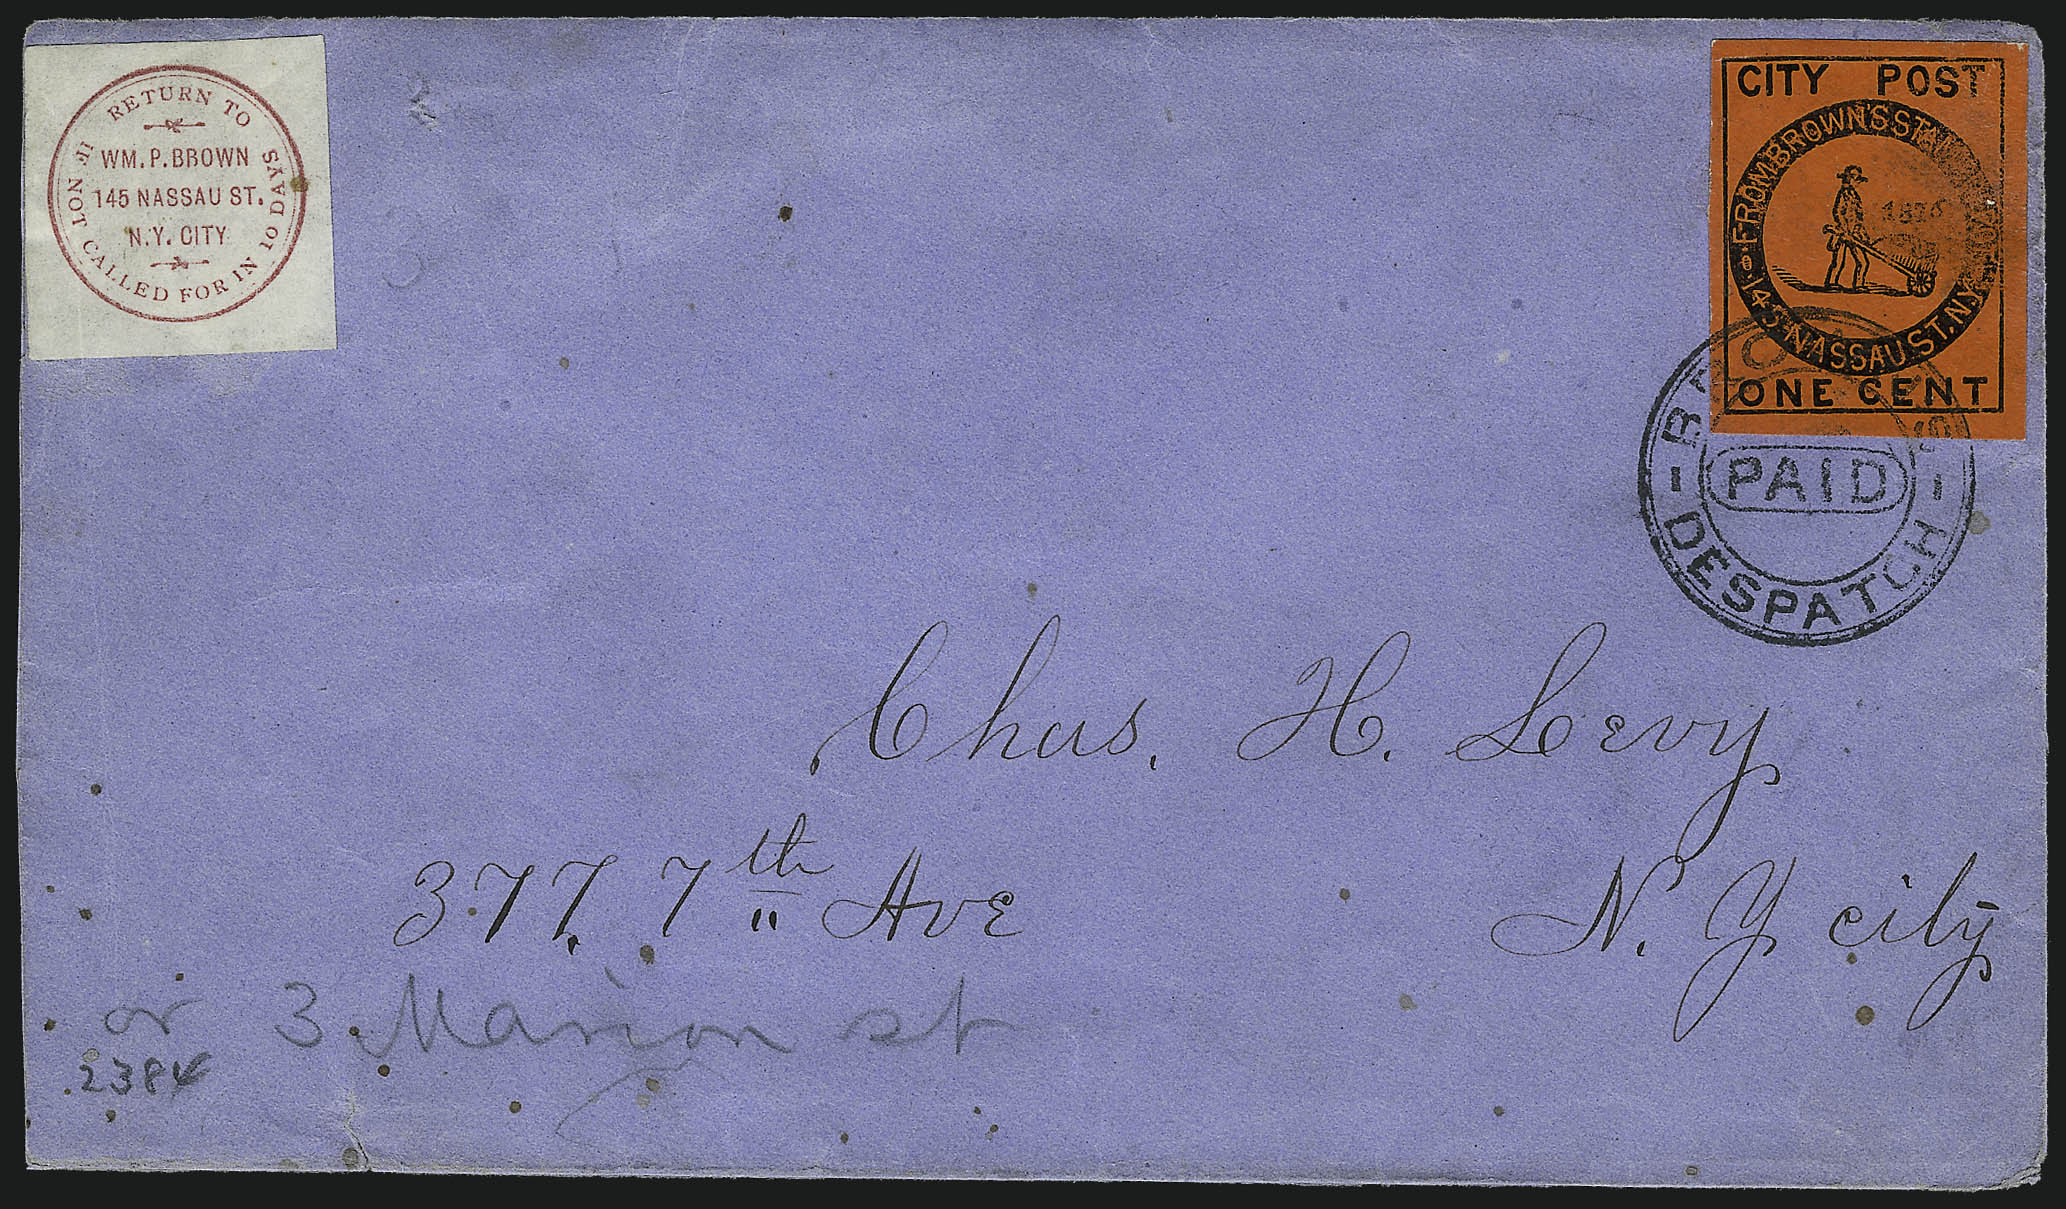 RETURN TO
WM. P. BROWN
145 NASSAU ST.
N.Y. CITY
IF NOT CALLED FOR IN 10 DAYS
CITY POST
FROM BROWN'S
1876
145 NASSAU ST. N.Y.
ONE CENT
PAID
DESPATCH
Chas. H. Levy
377, 7th Ave N. Y city
or 3 Marion st
2384